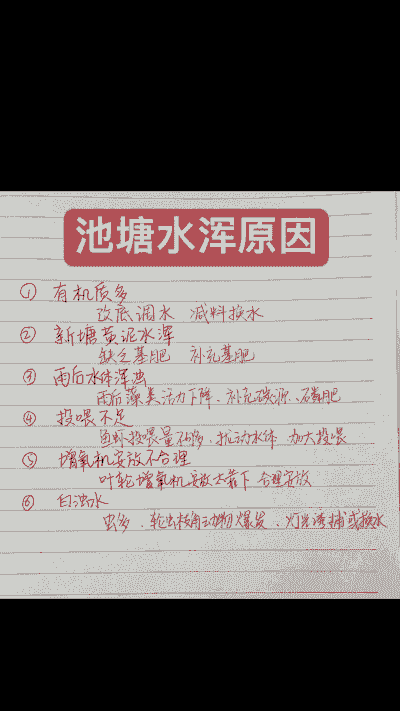 池塘水浑原因
① 有机质多
改底调水 减料换水
② 新塘黄泥水浑
缺乏基肥 补充基肥
③ 雨后水体浑浊
雨后藻类活力下降、补充碳源、磷肥
④ 投喂不足
鱼虾投喂量不够,扰动水体 加大投喂
⑤ 增氧机安放不合理
叶轮增氧机安放太靠下 合理安放
⑥ 白浊水
虫多、轮虫枝角动物爆发、灯光诱捕或换水